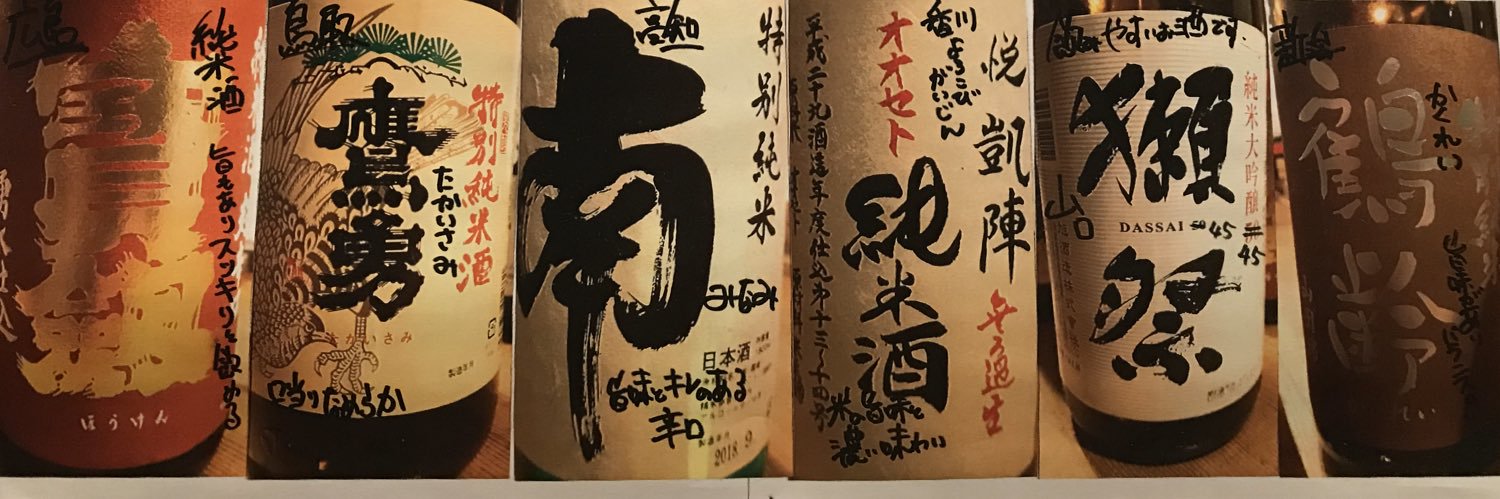 広島
純米酒
旨味ありスッキリと飲める
ほうけん
鳥取
特別純米酒
鷹勇
たかいさみ
かいさみ
製造年月
口当りなめらか
高知
特別純米
南
みなみ
日本酒
旨味とキレのある
辛口
製造年月
2018.9
香川
よろこび
がいじん
悦凱陣
オオセト
平成二十九酒造年度仕込み第十三、十四号
純米酒
無ろ過生
米の旨味と
濃い味わい
飲みやすいお酒です
純米大吟醸
獺祭
山口
DASSAI 50 45
45
旭酒造株式会社
かくれい
鶴齢